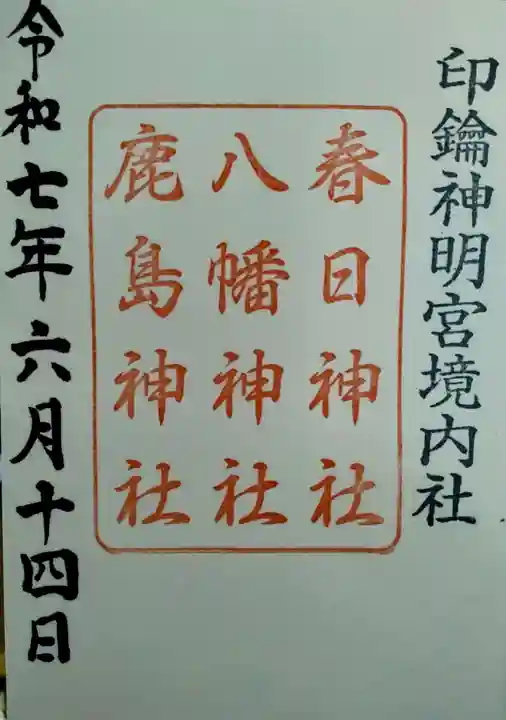 印鑰神明宮境内社
春日神社
八幡神社
鹿島神社
令和七年六月十四日